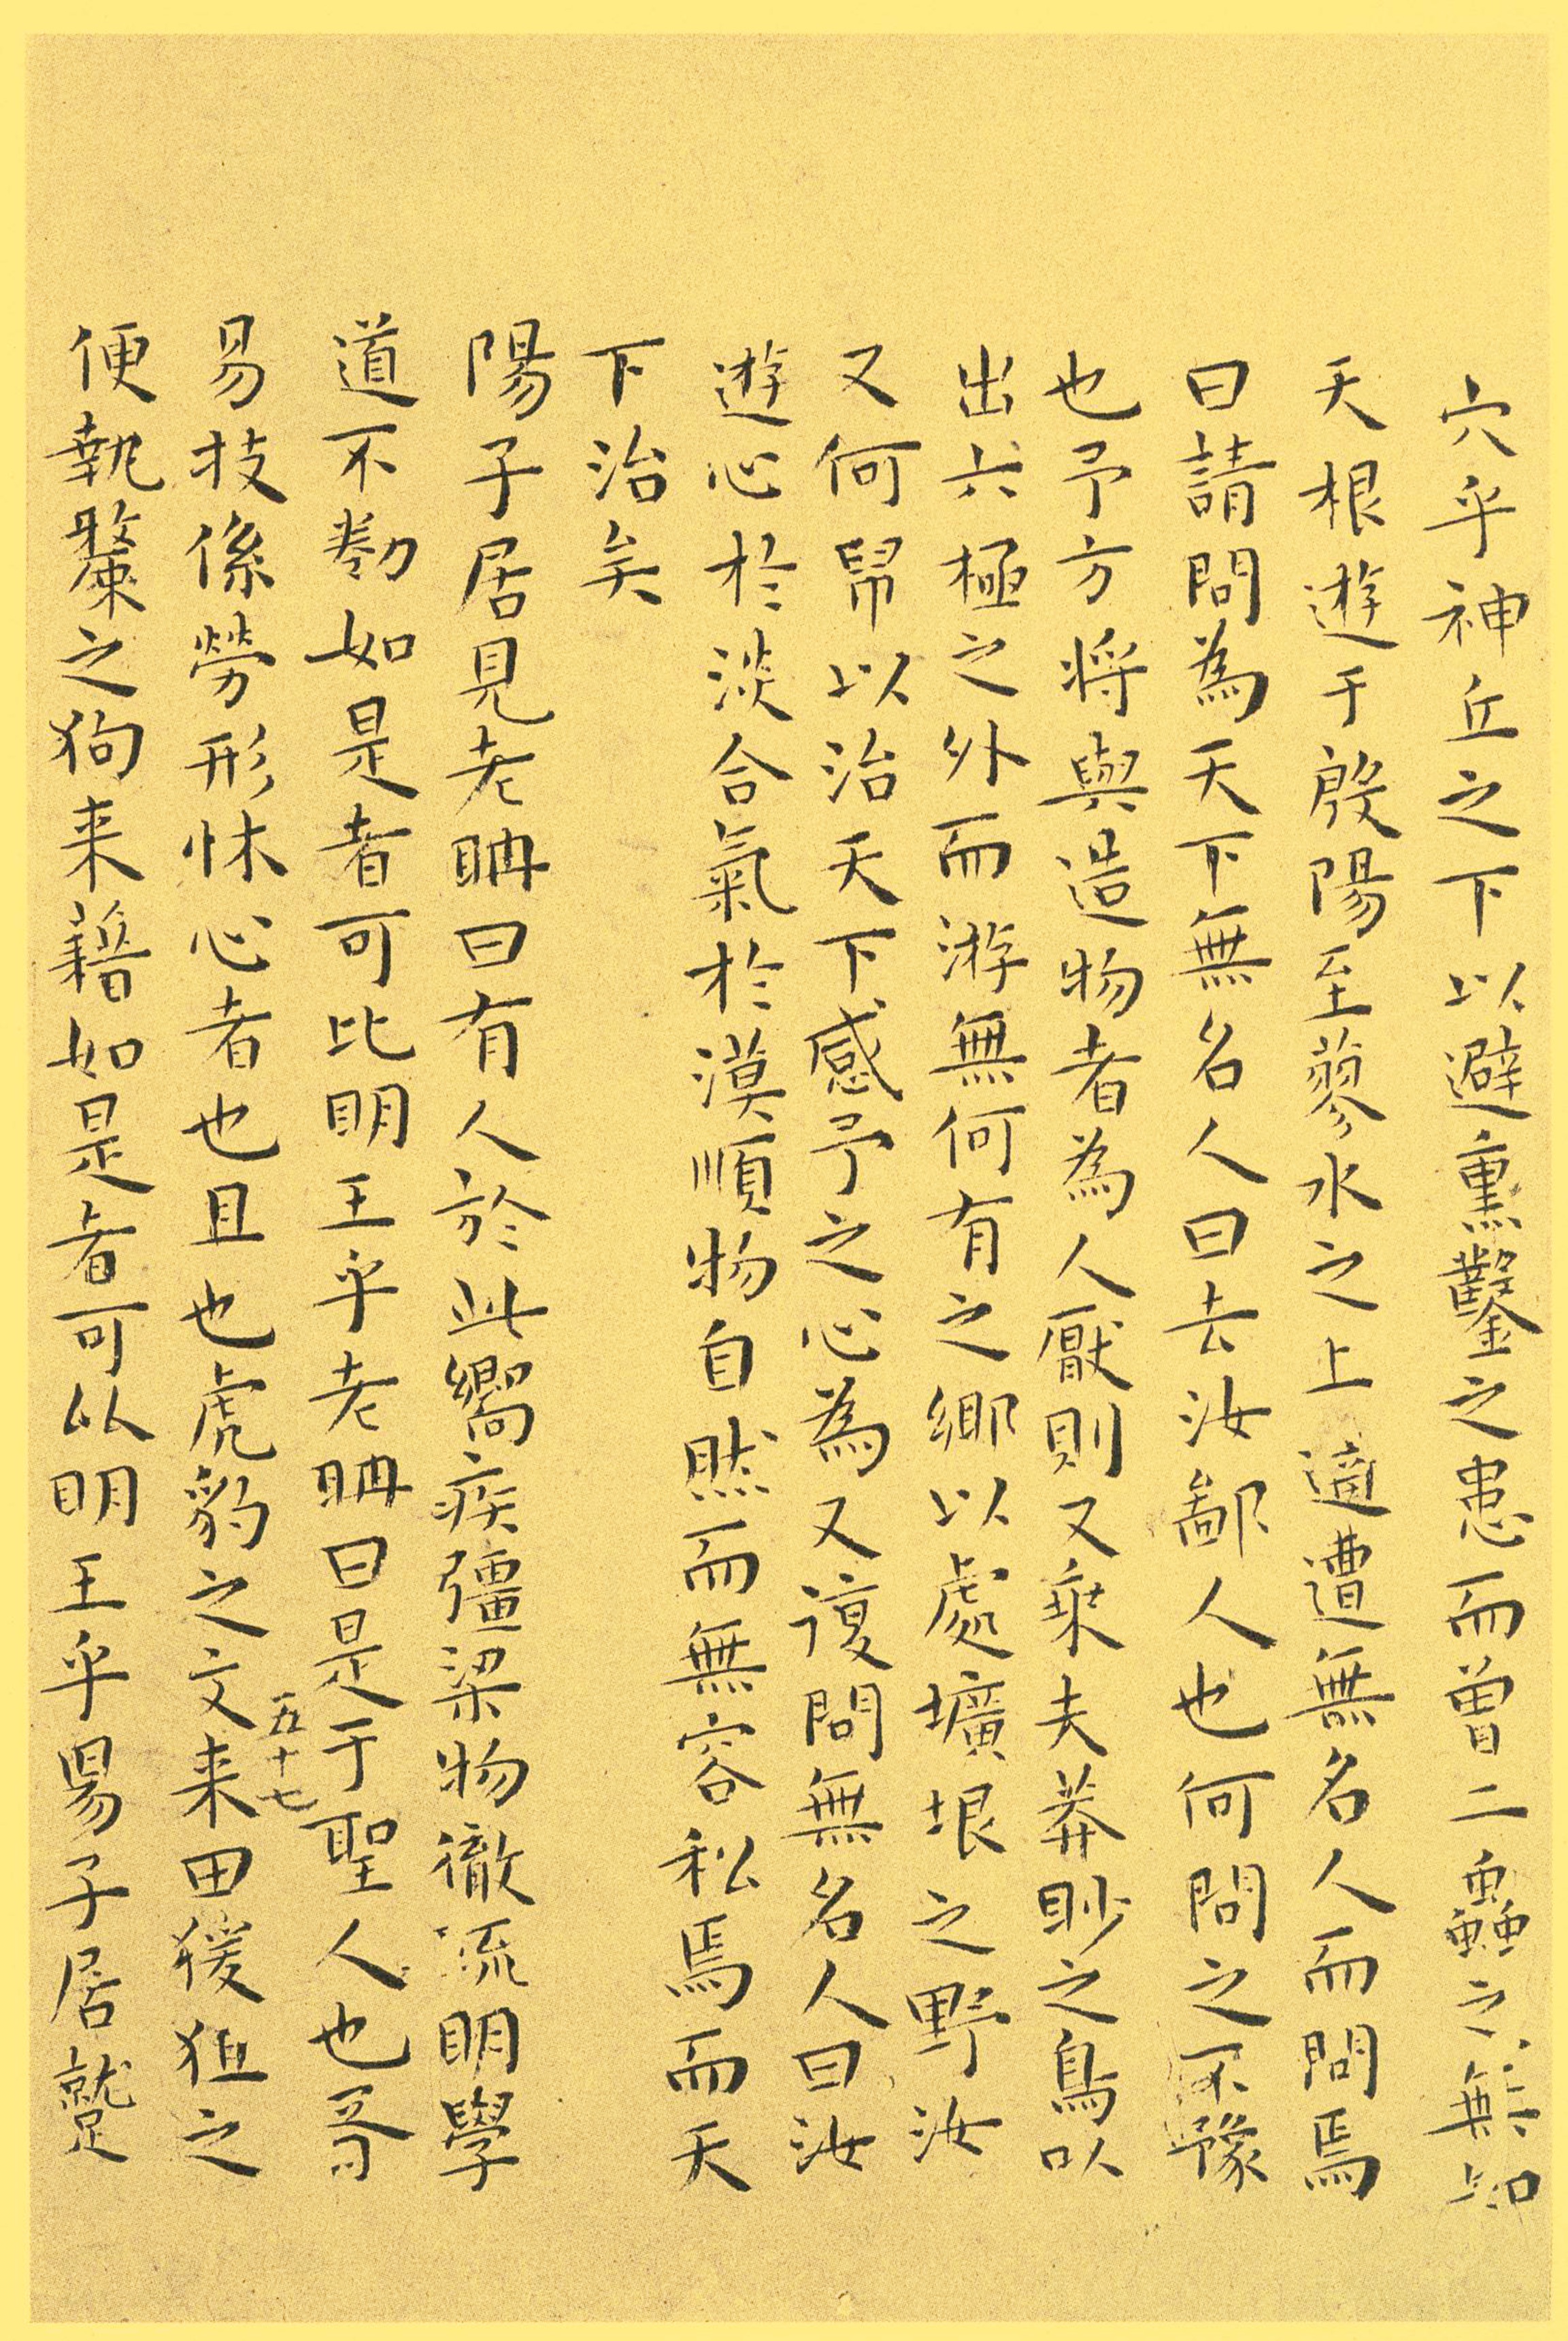 穴乎神丘之下以避熏鑿之患而曾二蟲之無知
天根遊于殷陽至蓼水之上適遭無名人而問焉
曰請問為天下無名人曰去汝鄙人也何問之不豫
也予方將與造物者為人厭則又乗夫莽眇之鳥以
出六極之外而游無何有之鄉以處壙垠之野汝
又何帠以治天下感予之心為又復問無名人曰汝
遊心於淡合氣於漠順物自然而無容私焉而天
下治矣
陽子居見老聃曰有人於此嚮疾彊梁物徹流明學
道不勌如是者可比明王乎老聃曰是于聖人也胥
易技係勞形怵心者也且也虎豹之文来田猨狙之
五十七
便執斄之狗来藉如是者可以明王乎陽子居蹵